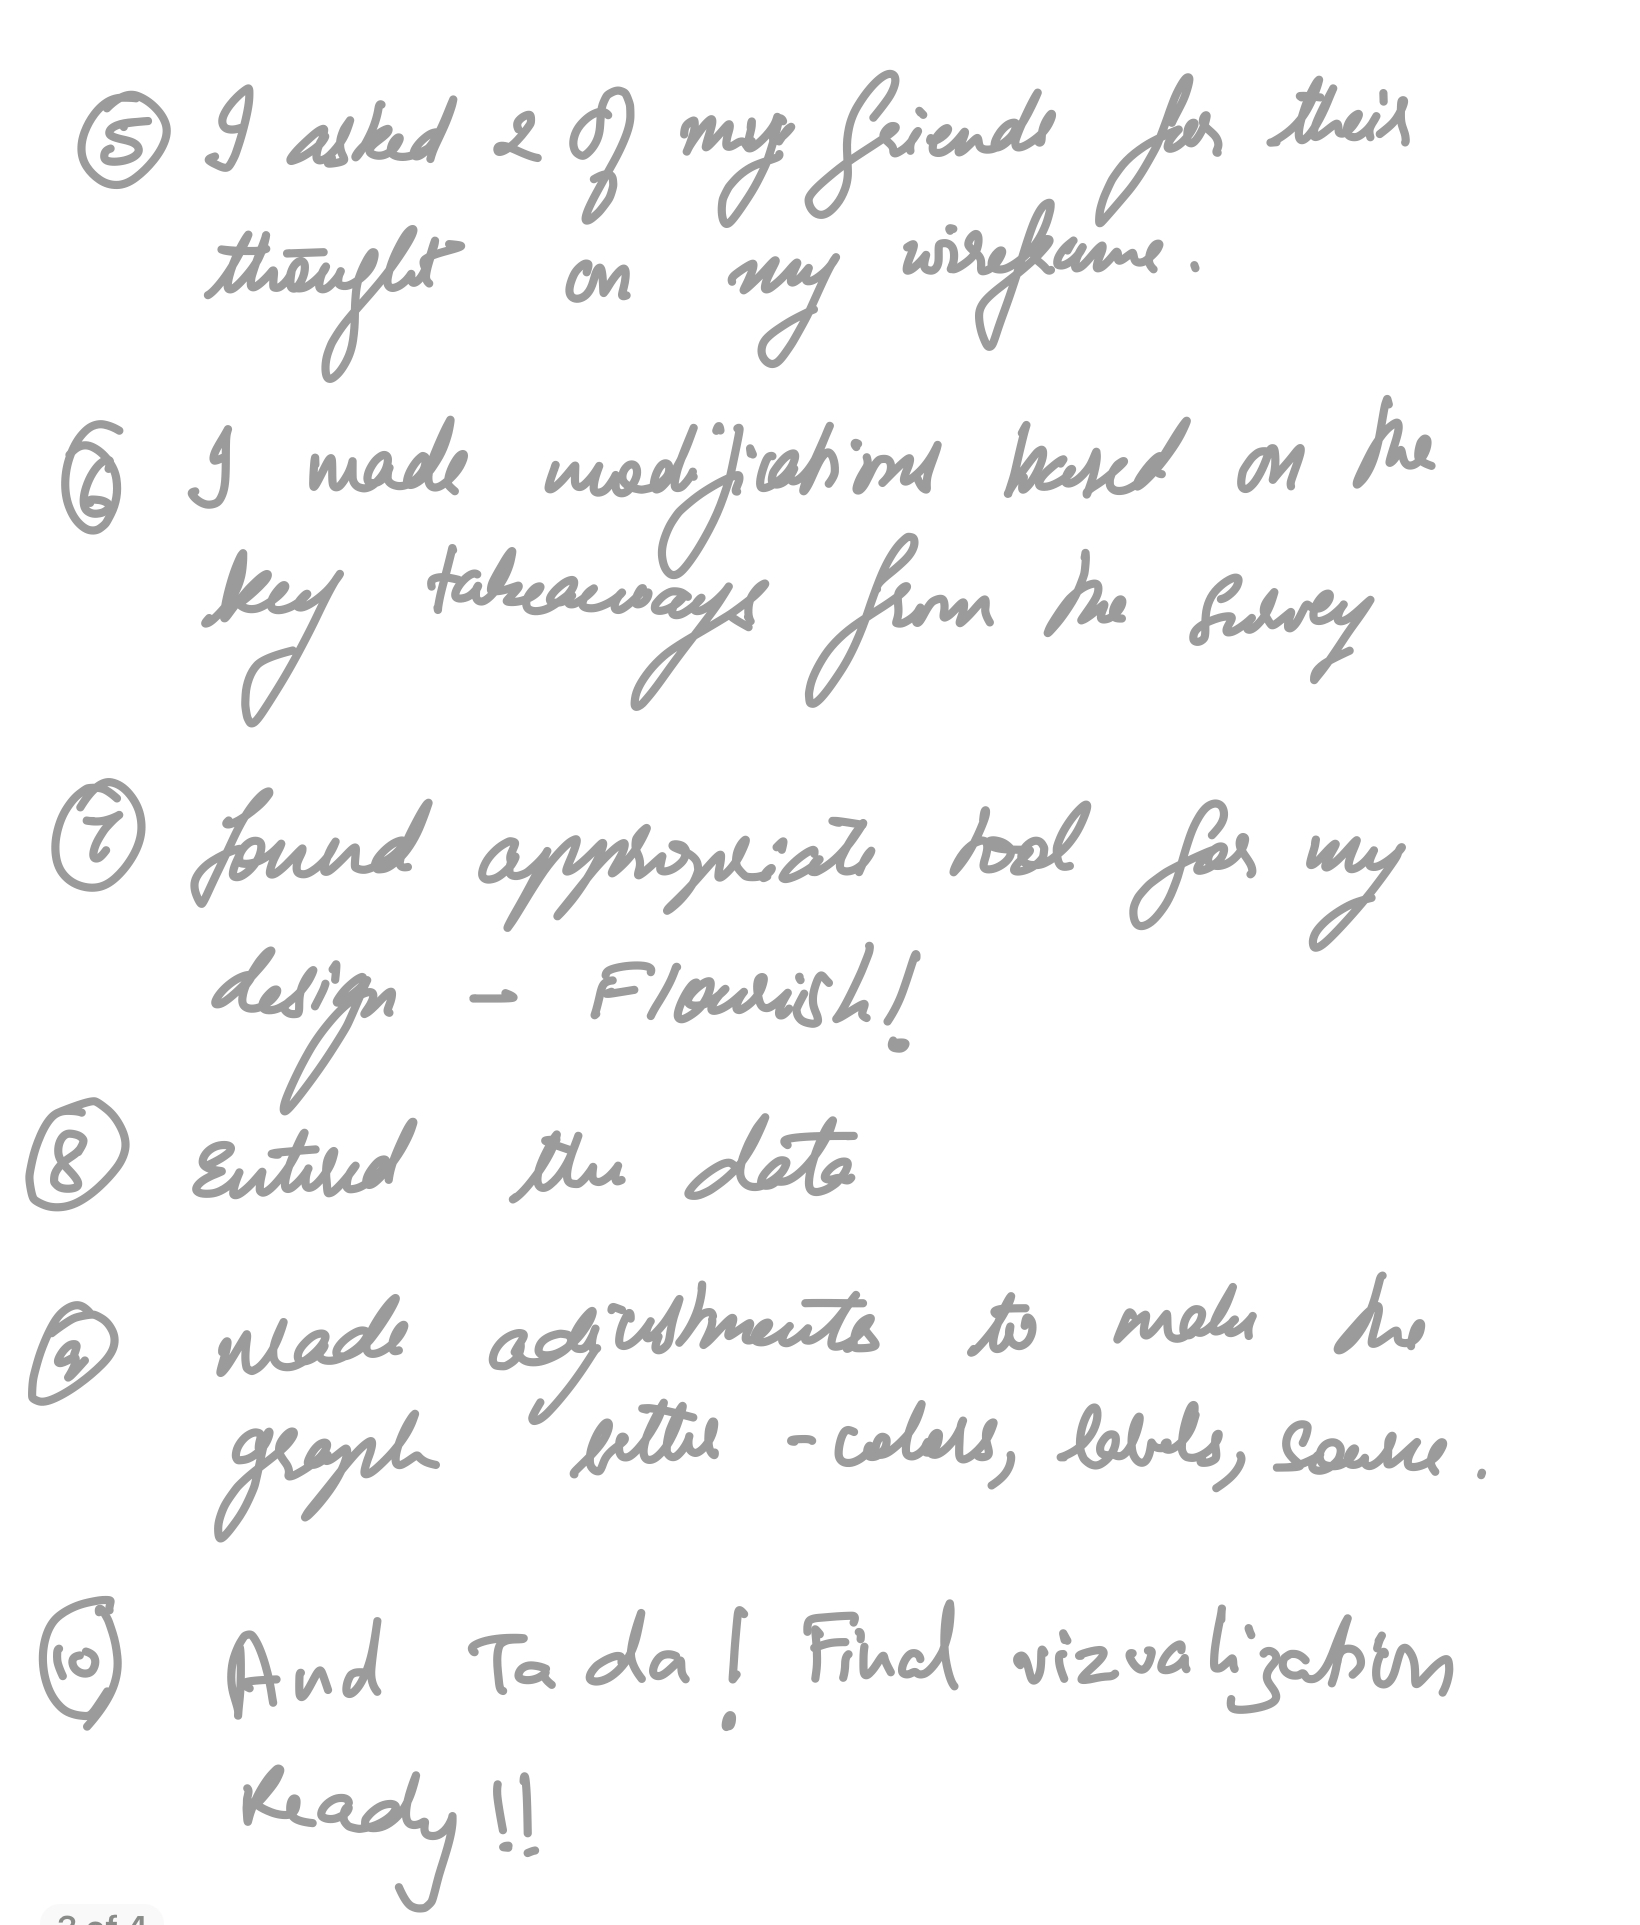 5 I asked 2 of my friends for their
thought on my wireframe.
6 I made modifications based on the
key takeaways from the survey
7 found appropriate tool for my
design - Flourish!
8 Entered the data
9 Made adjustments to make the
graph better - colors, levels, source.
10 And Ta da! Final vizualization
Ready!!
3 of 4